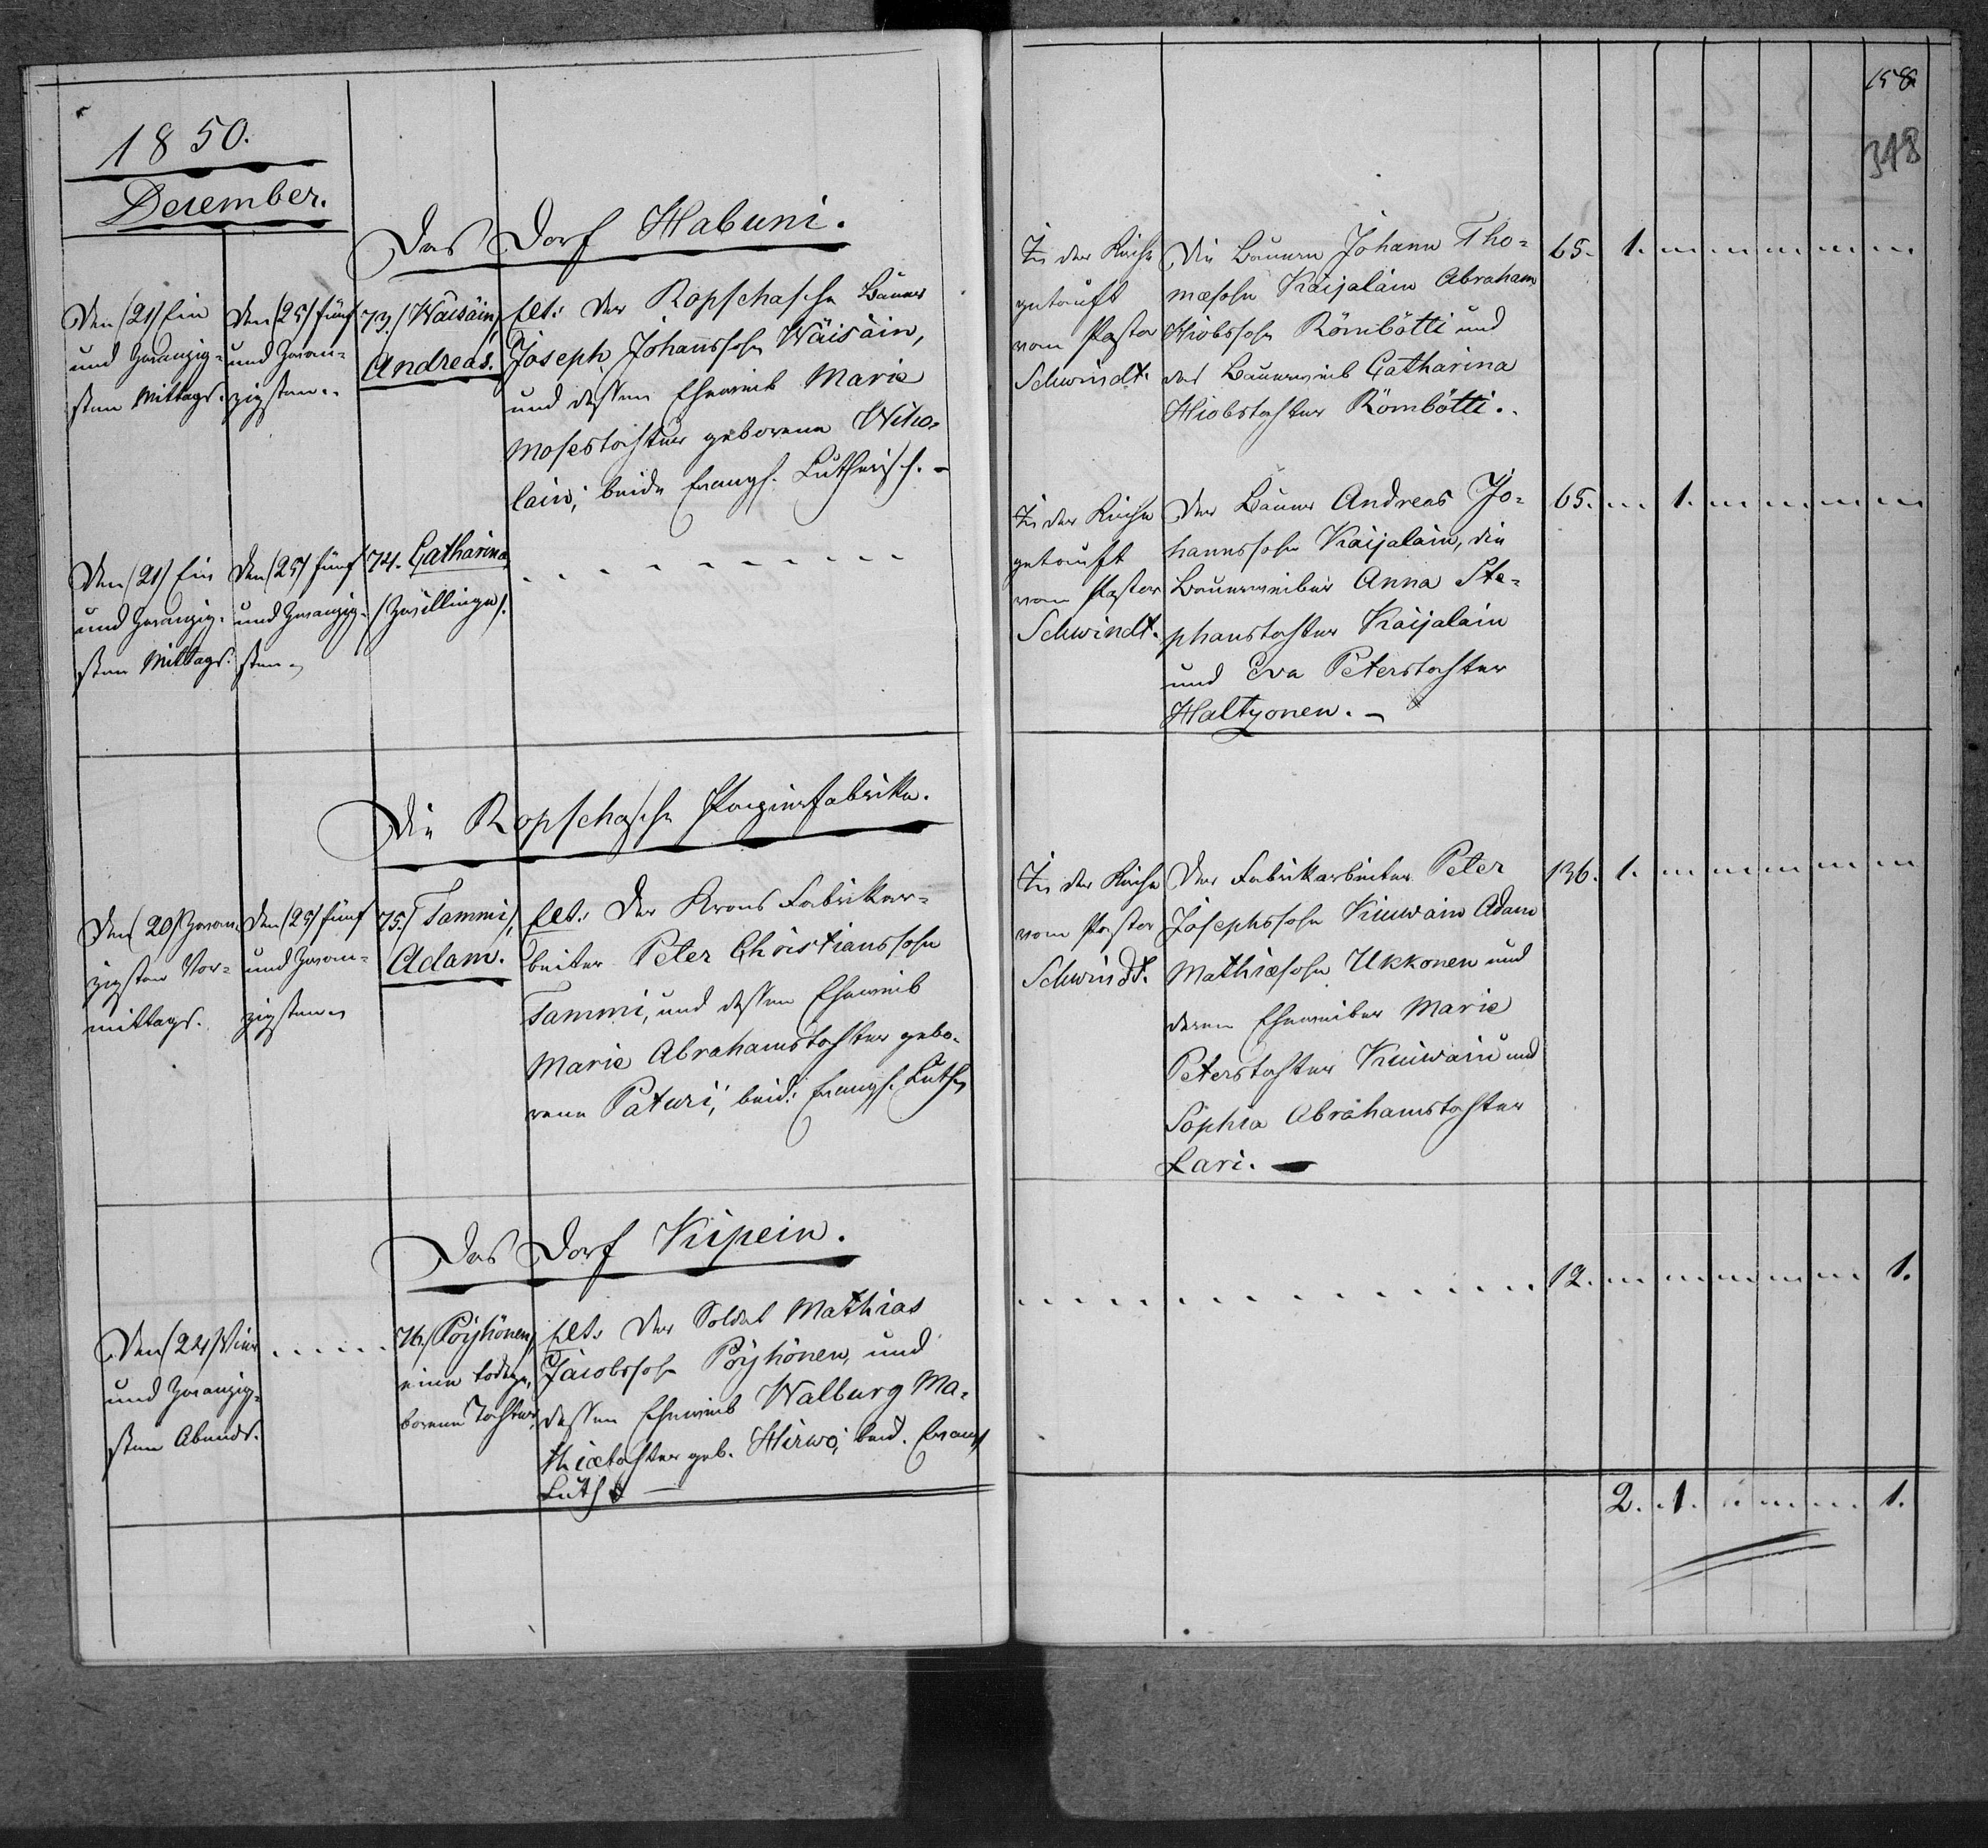 1850.
December.
Das Dorf Habuni.
Den (21) Ein
und Zwanzig-
sten Mittags.
Den (25) fünf
und Zwan-
zigsten.
73. (Wäisäin)
Andreas.
Elt: Der Ropschasche Bauer
Joseph Johannssohn Wäisäin,
und dessen Eheweib Marie
Mosestochter geborene Wiho-
lain; beide Evangl. Lutherisch. -
Den (21) Ein
und Zwanzig-
sten Mittags.
Den (25) fünf
und Zwanzig-
sten.
74. Catharina,
(Zwillinge).
Die Ropschasche Papierfabrike.
Den (20) Zwan-
zigsten Vor-
mittags.
Den (25) fünf
und Zwan-
zigsten.
75. (Tammi),
Adam.
Elt: Der Krons Fabrikar-
beiter Peter Christianssohn
Tammi, und dessen Eheweib
Marie Abrahamstochter gebo-
rene Paturi; beid: Evangl. Luth.
Das Dorf Kipein.
Den (24) Vier
und Zwanzig-
sten Abends.
76. (Pöyhönen),
eine todtge-
borene Tochter.
Elt: Der Soldat Mathias
Jacobssohn Pöyhönen, und
dessen Eheweib Walburg Ma-
thiætochter geb. Hirwo; beid. Evangl
Luth. -
158
318
In der Kirche
getauft
vom Pastor
Schwindt.
Die Bauern Johann Tho-
mæsohn Kaijalain Abraham
Hiobssohn Römbötti und
das Bauerweib Catharina
Hiobstochter Römbötti.
65. 1.
In der Kirche
getauft
vom Pastor
Schwindt.
Der Bauer Andreas Jo-
hannssohn Kaijalain, die
Bauerweiber Anna Ste-
phanstochter Kaijalain
und Eva Peterstochter
Haltyonen. -
65. 1.
In der Kirche
vom Pastor
Schwindt.
Der Fabrikarbeiter Peter
Josephssohn Kiuwain Adam
Mathiæsohn Ukkonen und
deren Eheweiber Marie
Peterstochter Kiuwain und
Sophia Abrahamstochter
Lari. -
136. 1.
12. 1.
2. 1. 1.